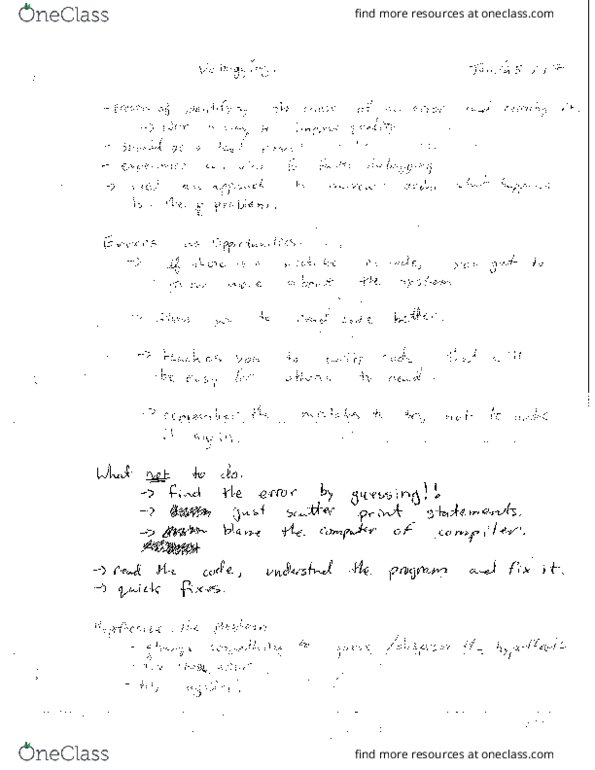 OneClass
find more resources at oneclass.com
Debugging.
- process of identifying the cause of an error and correcting it.
-> not a way to improve quality
- should be a last
- experience can lead to faster debugging
-> need an approach to
is the problem.
Errors as Opportunities
-> if there is a mistake in code, you get to
know more about the system
-> allows you to read code better.
-> teaches you to write code that will
be easy for others to read.
-> remember the mistakes to try not to make
it again.
What not to do.
-> find the error by guessing!!
-> just scatter print statements.
-> blame the computer of compiler.
-> read the code, understand the program and fix it.
-> quick fixes.
the problem
- change something to prove /disprove the hypothesis
- fix
- try again!
OneClass
find more resources at oneclass.com